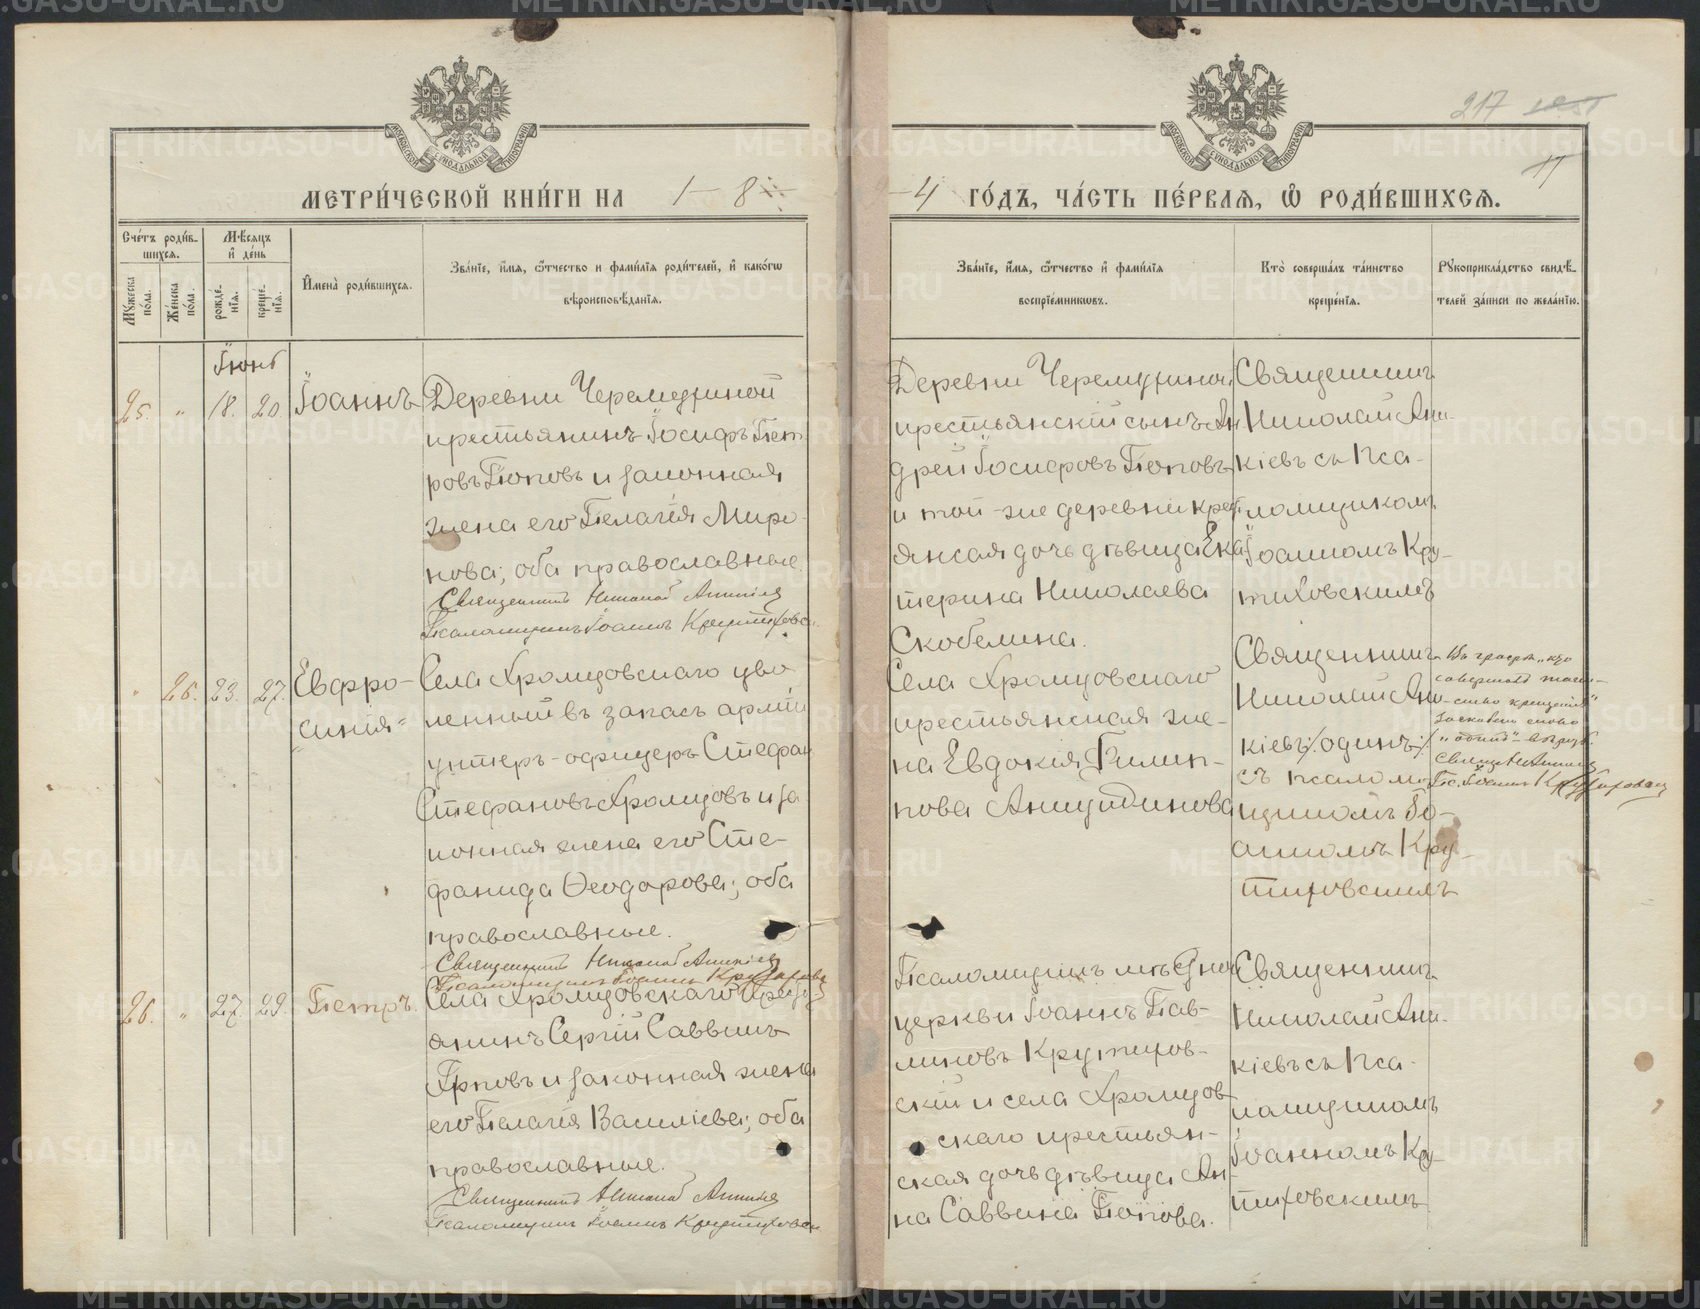 217
17
МЕТРИ́ЧЕСКОЙ КНИ́ГИ НА 1-8
-4 ГО́ДЪ, ЧА́СТЬ ПЕ́РВАЯ, Ѽ РОДИ́ВШИХСЯ.
Сче́тъ роди́в-
шихся.
Му́жеска по́ла.
Же́нска по́ла.
Мѣ́сяцъ и де́нь
рожде́-
нія.
креще́-
нія.
Имена̀ роди́вшихся.
Зва́ніе, и́мя, ѻ́тчество и фами́лія роди́телей, и како́гѡ
вѣроисповѣ́данія.
Зва́ніе, и́мя, ѻ́тчество и фами́лія
воспріе́мниковъ.
Кто̀ соверша́лъ та́инство
креще́нія.
Рукоприкла́дство свидѣ́-
телей за́писи по жела́нію.
Іюнь
25. " 18. 20. Іоаннъ
Деревни Черемшиной
крестьянинъ Іосифъ Пет
ровъ Поповъ и законная
жена его Пелагія Миро-
нова; оба православные.
Священникъ Николай Аникіевъ
Псаломщикъ Іоаннъ Крутиховск
Деревни Черемшиной
крестьянскій сынъ Ан
дрей Іосифовъ Поповъ
и той-же деревни крест
янсая дочь дѣвица Ека
терина Николаева
Скобелина.
Священникъ
Николай Ани-
кіевъ съ Пса-
ломщикомъ
Іоанномъ Кру-
тиховскимъ
" 26. 23. 27. Евфро-
синія=
Села Хромцовскаго уво
ленный въ запасъ арміи
унтеръ-офицеръ Стефан
Стефановъ Хромцовъ и за
конная жена его Сте-
фанида Ѳеодорова; оба
православные.
Священникъ Николай Аникіевъ
Псаломщикъ Іоаннъ Крутиховск
Села Хромцовскаго
крестьянская же-
на Евдокія Филип-
пова Аниудинова
Священникъ
Николай Ани
кіевъ /:одинъ:/
съ псаломъ
щикомъ Іо-
анномъ Кру-
тиховскимъ
Въ графѣ "кто
совершалъ таин-
ство крещенія"
слово
"одинъ"
Свящ. Н. Аникіевъ
Пс. Іоаннъ Крутиховскій
26. " 27. 29. Петръ.
Села Хромцовскаго крест
янинъ Сергій Саввинъ
Поповъ и законная жена
его Пелагія Василіева; оба
православные.
Священникъ Николай Аникіевъ
Псаломщикъ Іоаннъ Крутиховск
Псаломщикъ мѣстной
церкви Іоаннъ Пав-
линовъ Крутихов-
скій и села Хромцов
скаго крестьян-
ская дочь дѣвица Ан-
на Саввина Попова.
Священникъ
Николай Ани-
кіевъ съ Пса-
ломщикомъ
Іоанномъ Кру
тиховскимъ